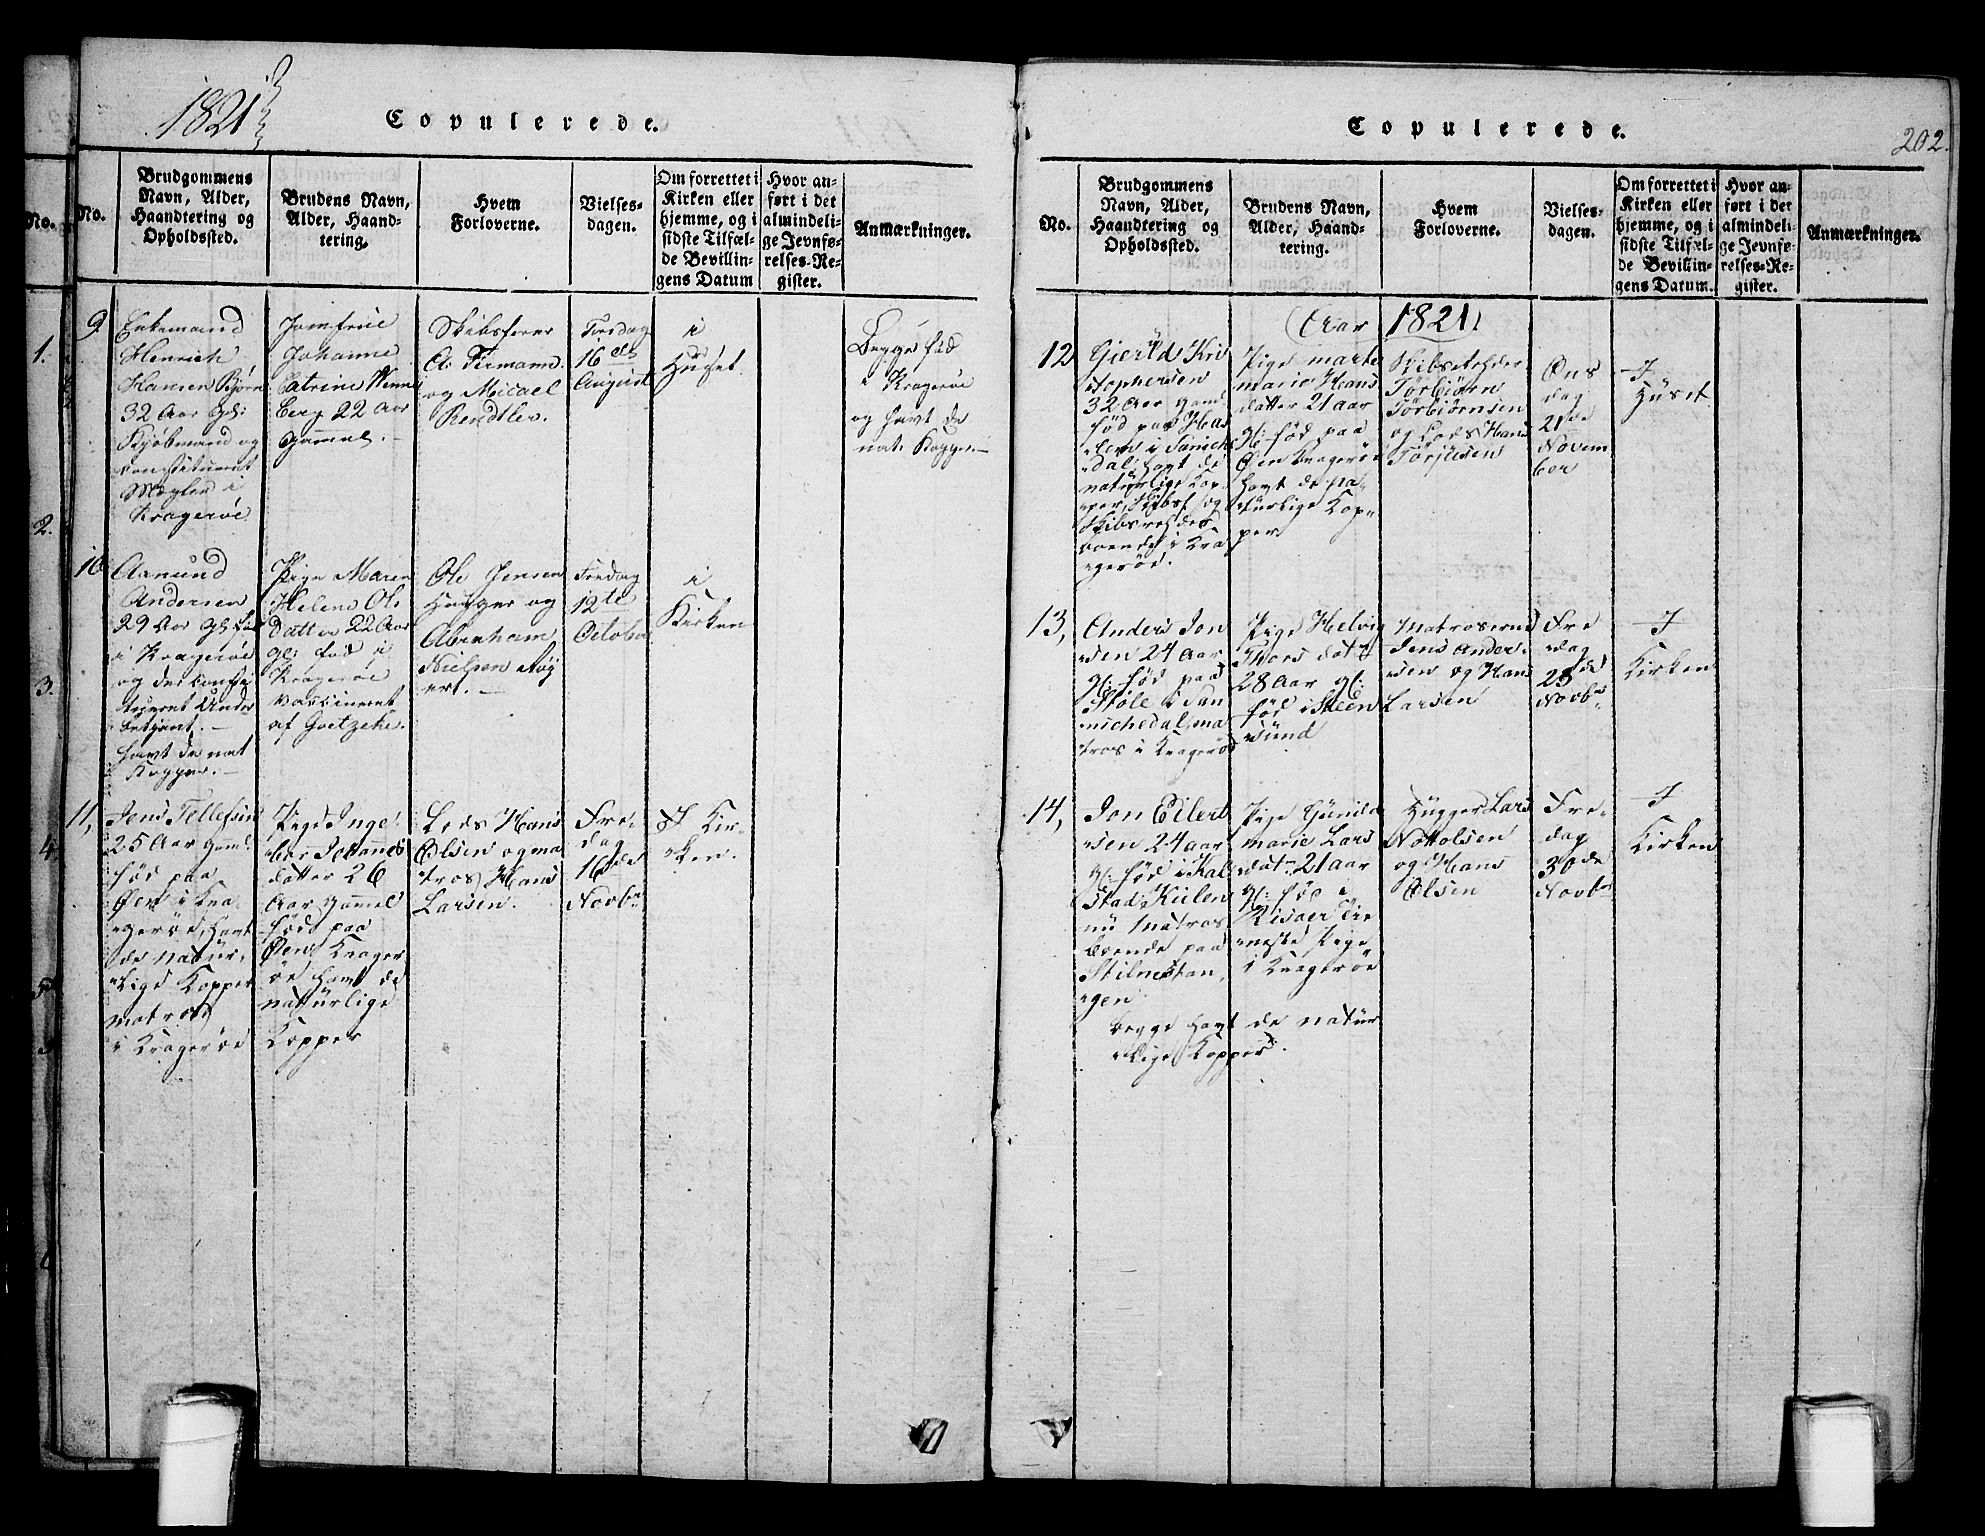 1821
Copulerede.
No.
Brudgommens
Navn, Alder,
Haandtering og
Opholdssted.
Brudens Navn,
Alder, Haand-
tering.
Hvem
Forloverne.
Vielses-
dagen.
Om forrettet i
Kirken eller
hjemme, og i
sidste Tilfæl-
de Bevillin-
gens Datum
Hvor an-
ført i det
almindeli-
ge Jevnfø-
relses-Re-
gister.
Anmærkninger.
9
Enkemand
Henrich
Hansen Bjørn
32 Aar gl:
Kjøbmand og
constitueret
Mægler i
Kragerøe
Jomfrue
Johanne
Catrine Wenne
berg 22 Aar
gammel.
Skibsfører
A. Firmann
og Micael
Rendtler.
Torsdag
16de
August
i
Huset.
Begge fød
i Kragerøe
og havt de
nat. Kopper.
10
Aanund
Andersen
29 Aar gl: fød
i Kragerøe
og der consti
tueret Under
betjent.
havt de nat
Kopper.
Pige Maren
Helene Ols
datter 22 Aar
gl: fød i
Kragerøe
vaccineret
af Goetzche.
Ole Jensen
Hugger og
Abraham
Nielsen
Fredag
12te
October
i
Kirken
11,
Jens Tellefsen
25 Aar gaml.
fød paa
Øen i Kra
gerøe, havt
de natur,
lige Kopper
matros
i Kragerøe
Pige Inge
bor Johannes
datter 26
Aar gammel
fød paa
Øen Krager
øe havt de
naturlige
Kopper
Lods Hans
Olsen og ma
tros Hans
Larsen.
Fre-
dag
16de
Novbr
I Kir
ken.
Copulerede.
202.
No.
Brudgommens
Navn, Alder,
Haandtering og
Opholdssted.
Brudens Navn,
Alder, Haand-
tering.
Hvem
Forloverne.
Vielses-
dagen.
Om forrettet i
Kirken eller
hjemme, og i
sidste Tilfæl-
de Bevillin-
gens Datum.
Hvor an-
ført i det
almindeli-
ge Jevnfø-
relses-Re-
gister.
Anmærkninger.
Aar 1821.
12
Gjeruld Kri
stophersen
32 Aar gaml
fød paa
i Sanickе
dal, havt de
naturlige Kop
per, Skibsf. og
Skibsreder
boende i Kra
gerøe.
Pige marte
maria Hans
datter 21 aar
gl. fød paa
Øen Kragerøe
havt de na-
turlige Kop
per
Skibsreder
Torbiørn
Torbiørnsen
og Lods Hans
Torjusen
Ons
dag
21de
Novem
ber
I
Huset
13,
Anders Jon
sen 24 aar
gl: fød paa
Støle i San
nichedal, ma
tros i Kragerøe
Pige Helvig
Thors datr
28 Aar gl.
fød i Steen
sund
Matroserne
Jens Ander
sen og Hans
Larsen
Fre
dag
23de
Novbr
I
Kirken
14,
Jon Eilert
sen 24 aar
gl: fød i Kal
stad Kiilen
nu matros
boende paa
Stilnestan,
gen
Pige Gunild
marie Lars
datr 21 aar
gl: fød i
Risøer Tie
neste Pige
i Kragerøe
begge havt de natur
lige Kopper.
Hugger Lars
Nottolsen
og Hans
Olsen
Fre-
dag
30de
Novbr
I
Kirken